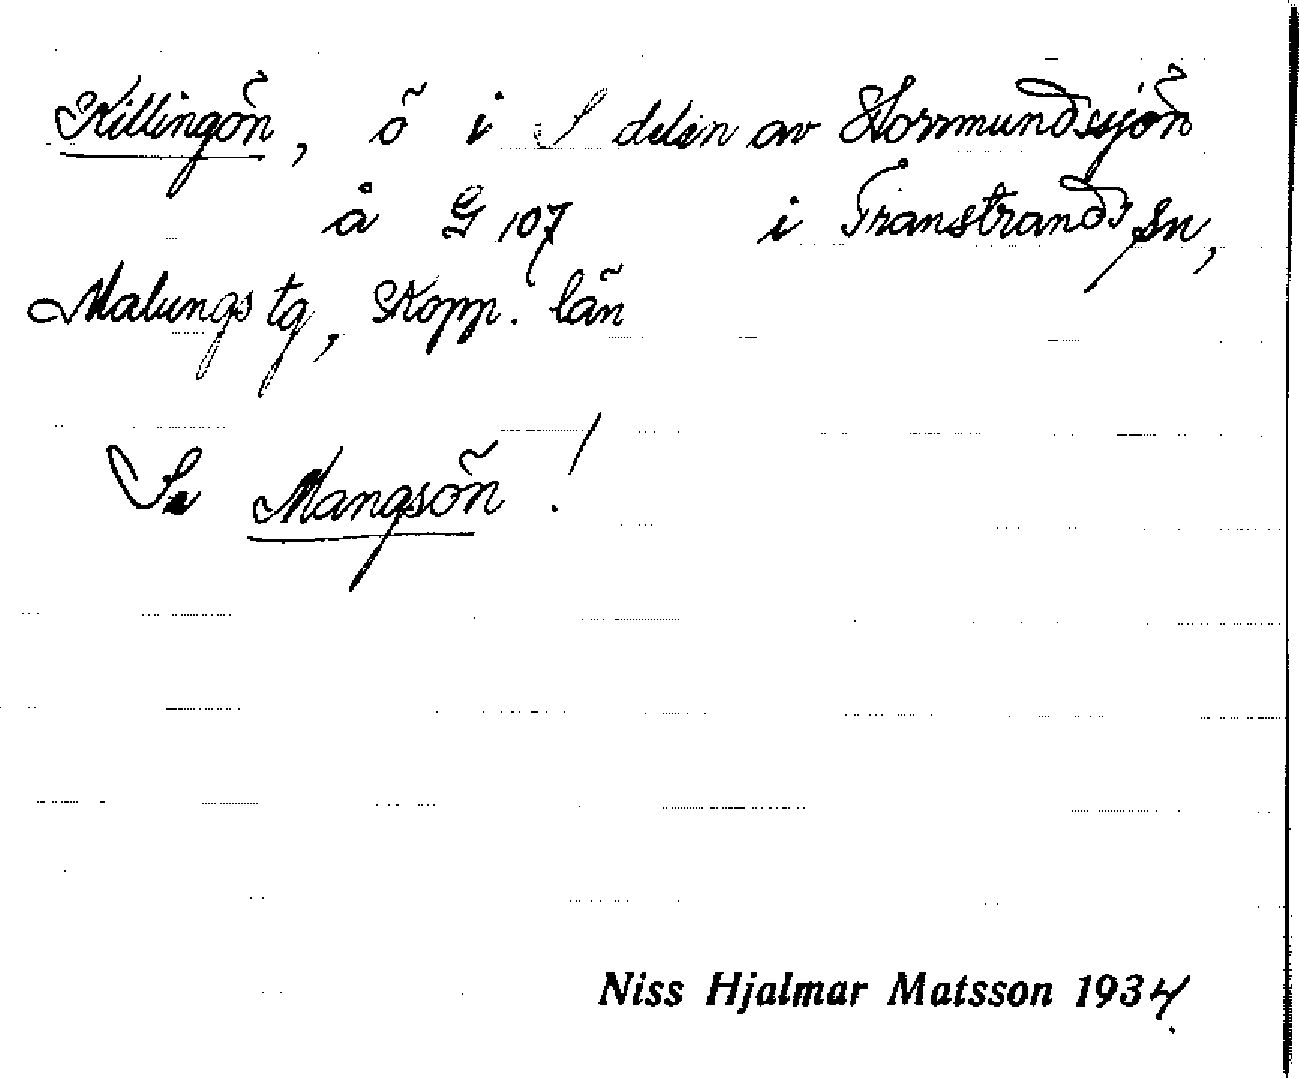 Killingön, ö i S delen av Horrmundssjön
å G 107 i Transtrands sn,
Malungs tg, Kopp. län
Se Mangsön!
Niss Hjalmar Matsson 1934.